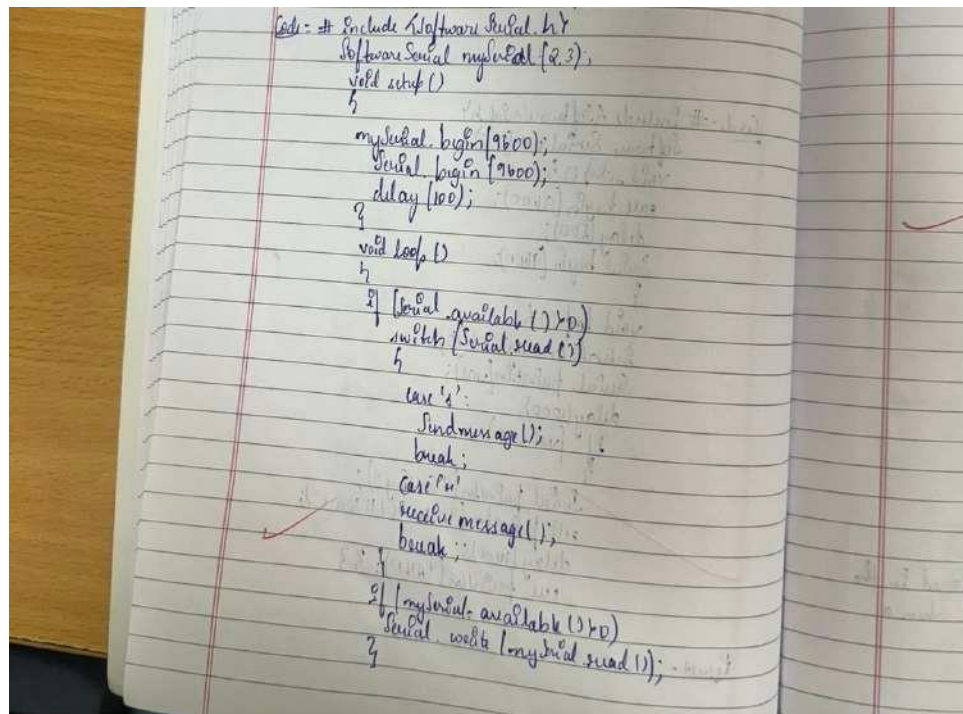 Code:- # include <Software Serial.h>
Software Serial mySerial (2,3);
void setup ()
{
mySerial.begin(9600);
Serial.begin (9600);
delay (100);
}
void loop ()
{
if (Serial.available () > 0)
switch (Serial.read ())
{
case 's':
Sendmessage();
break;
Case 'r'
receive message();
break;
}
if (mySerial.available () > 0)
Serial.write (mySerial.read ());
}